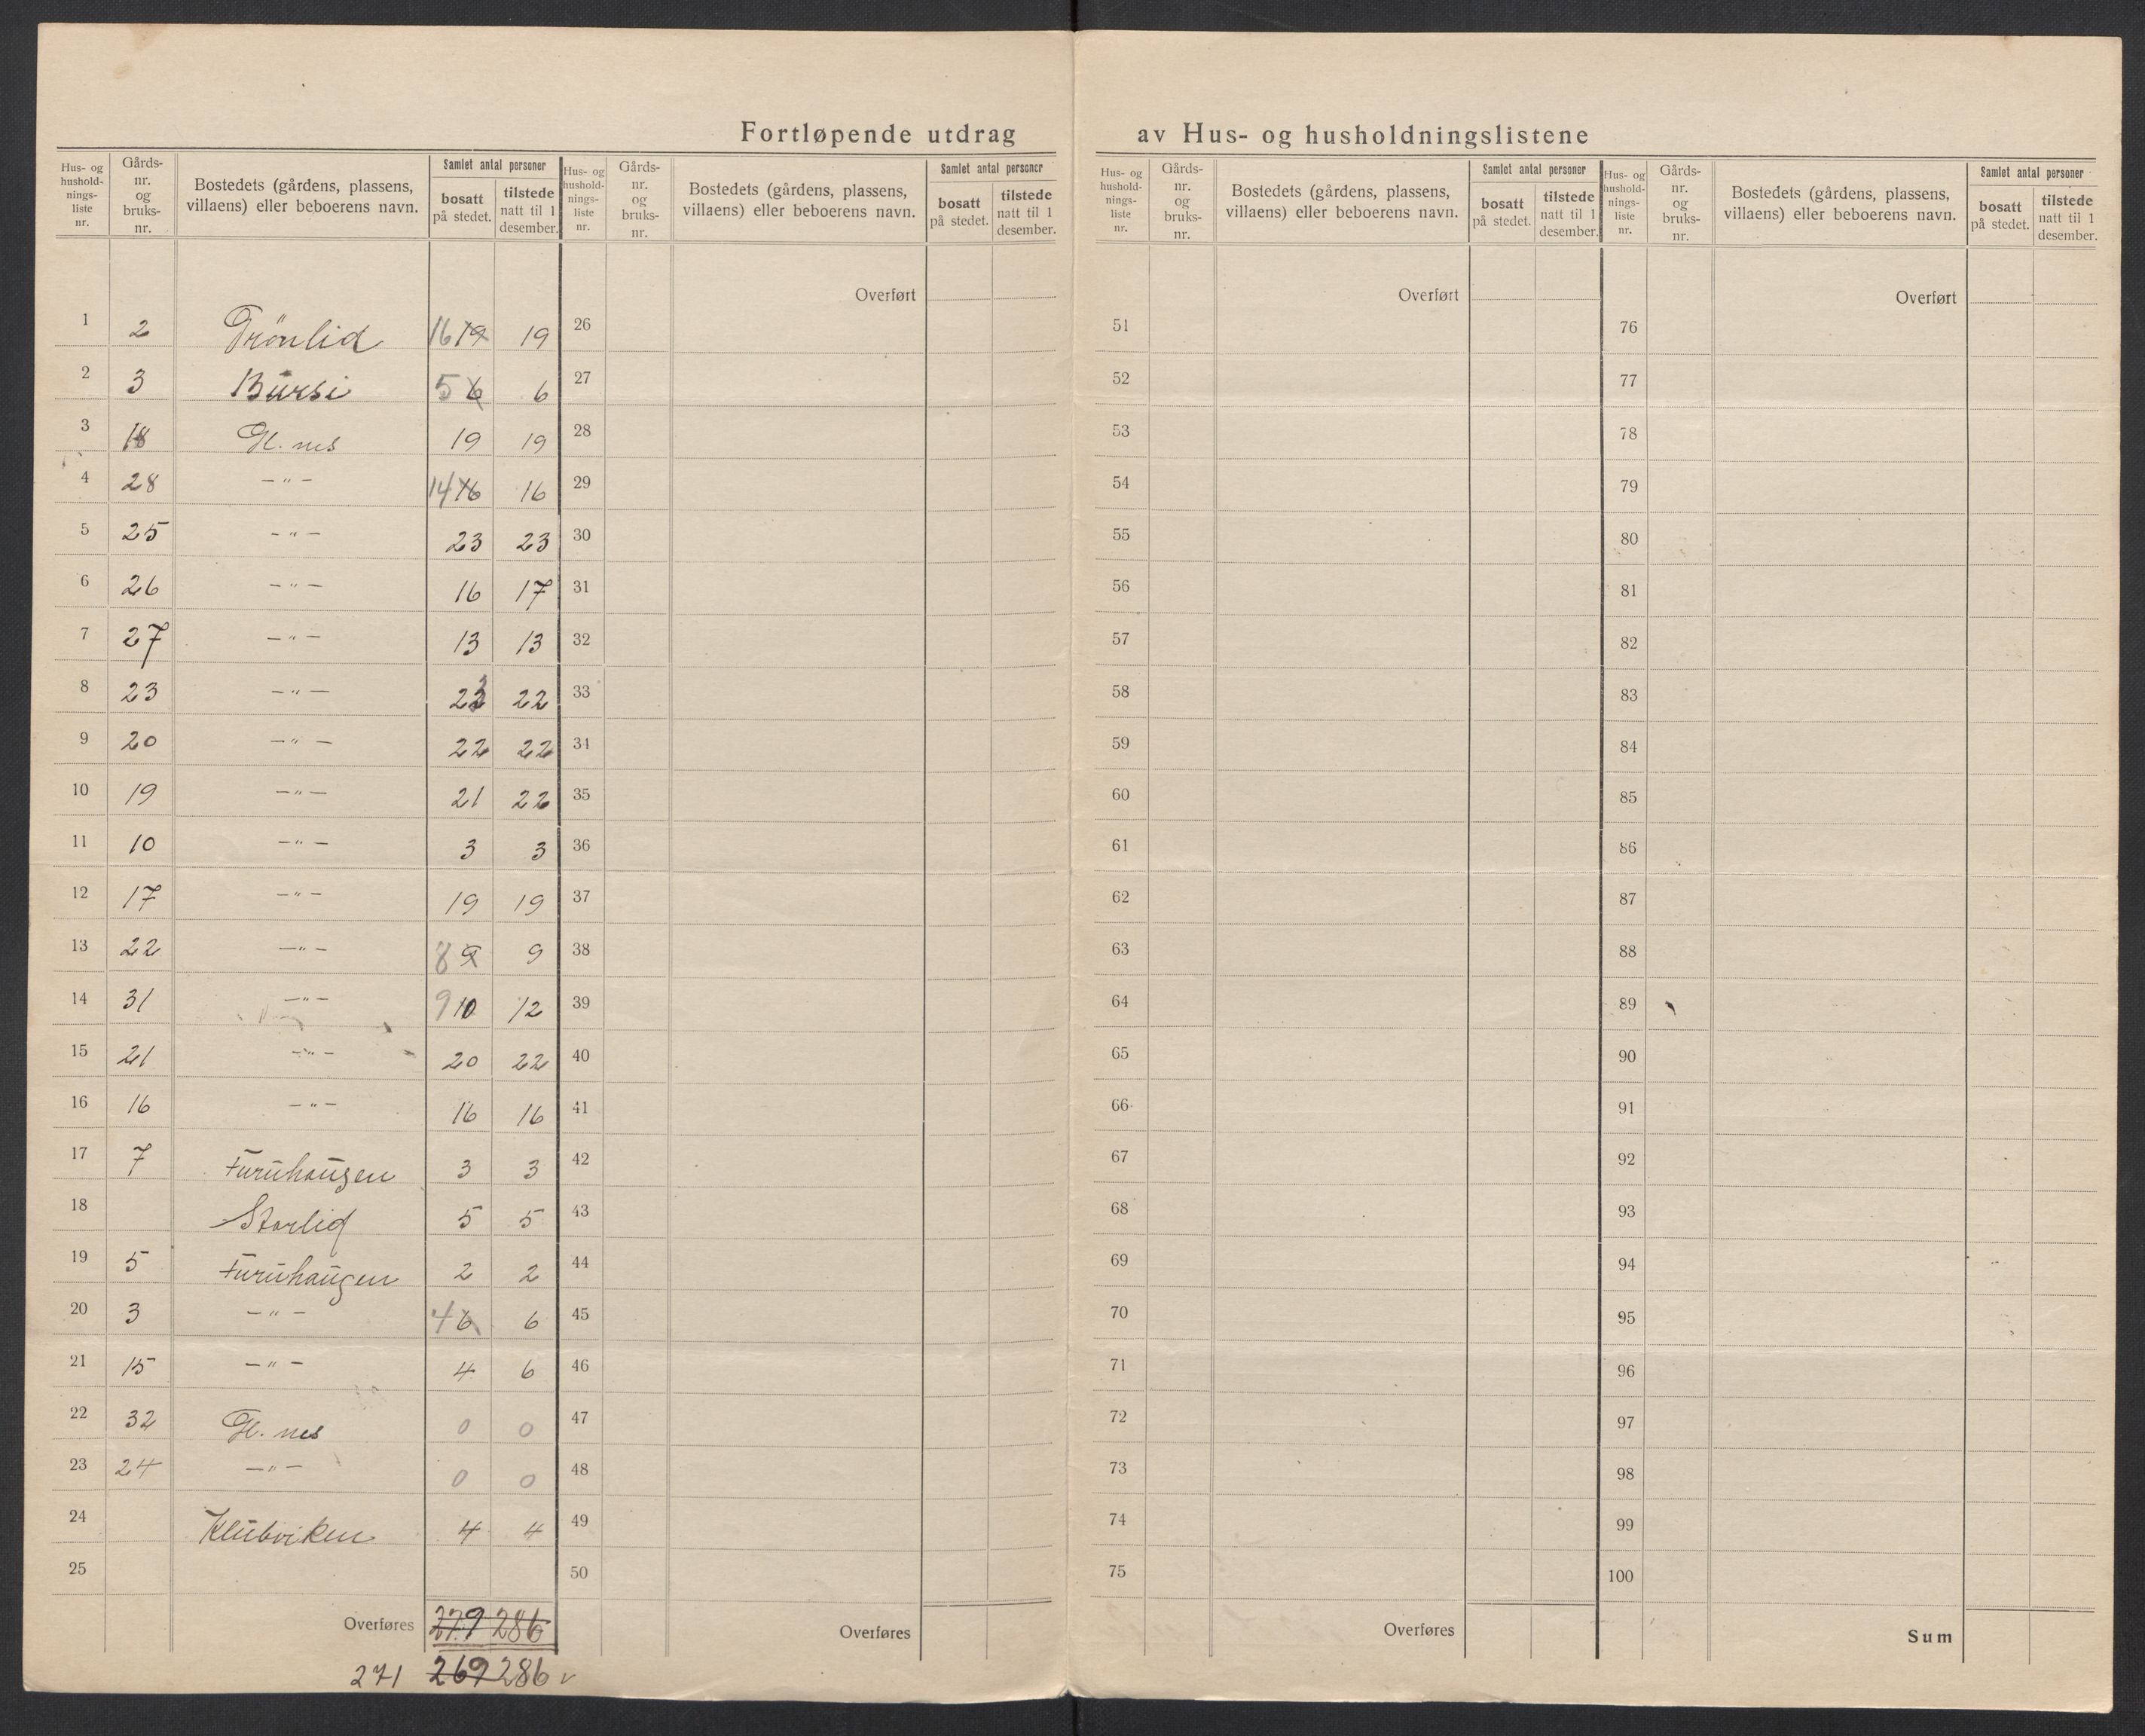 Fortløpende utdrag av Hus- og husholdningslistene
Hus- og husholdnings-liste nr. | Gårds-nr. og bruks-nr. | Bostedets (gårdens, plassens, villaens) eller beboerens navn. | Samlet antal personer | bosatt på stedet. | tilstede natt til 1 desember.
Hus- og husholdnings-liste nr. | Gårds-nr. og bruks-nr. | Bostedets (gårdens, plassens, villaens) eller beboerens navn. | Samlet antal personer | bosatt på stedet. | tilstede natt til 1 desember.
Hus- og husholdnings-liste nr. | Gårds-nr. og bruks-nr. | Bostedets (gårdens, plassens, villaens) eller beboerens navn. | Samlet antal personer | bosatt på stedet. | tilstede natt til 1 desember.
Hus- og husholdnings-liste nr. | Gårds-nr. og bruks-nr. | Bostedets (gårdens, plassens, villaens) eller beboerens navn. | Samlet antal personer | bosatt på stedet. | tilstede natt til 1 desember.
Overført Overført Overført
1 2 Trönlid 16 19 19 26 51 76
2 3 Bursi 5 6 6 27 52 77
3 18 Gl. nes 19 19 28 53 78
4 28 — " — 14 16 16 29 54 79
5 25 — " — 23 23 30 55 80
6 26 — " — 16 17 31 56 81
7 27 — " — 13 13 32 57 82
8 23 — " — 22 22 33 58 83
9 20 — " — 22 22 34 59 84
10 19 — " — 21 22 35 60 85
11 10 — " — 3 3 36 61 86
12 17 — " — 19 19 37 62 87
13 22 — " — 8 9 9 38 63 88
14 31 — " — 9 10 12 39 64 89
15 21 — " — 20 22 40 65 90
16 16 — " — 16 16 41 66 91
17 7 Furuhaugen 3 3 42 67 92
18 Storlid 5 5 43 68 93
19 5 Furuhaugen 2 2 44 69 94
20 3 — " — 4 6 6 45 70 95
21 15 — " — 4 6 46 71 96
22 32 Gl. nes 0 0 47 72 97
23 24 — " — 0 0 48 73 98
24 Klubviken 4 4 49 74 99
25 50 75 100
Overføres 279 286 Overføres Overføres Sum
271 269 286 v